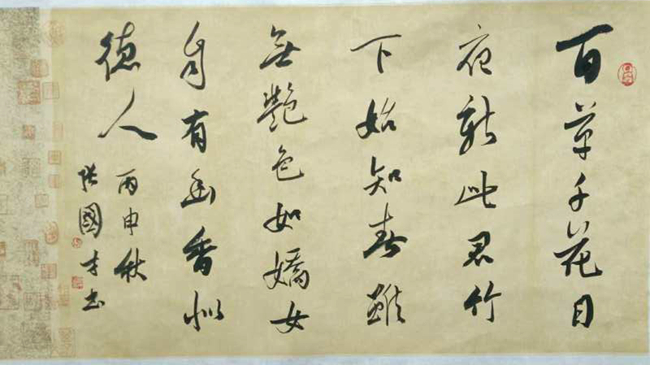 百草千花日
夜新此君竹
下始知春雖
無艷色如嬌女
自有幽香似
德人
丙申秋
張國才書